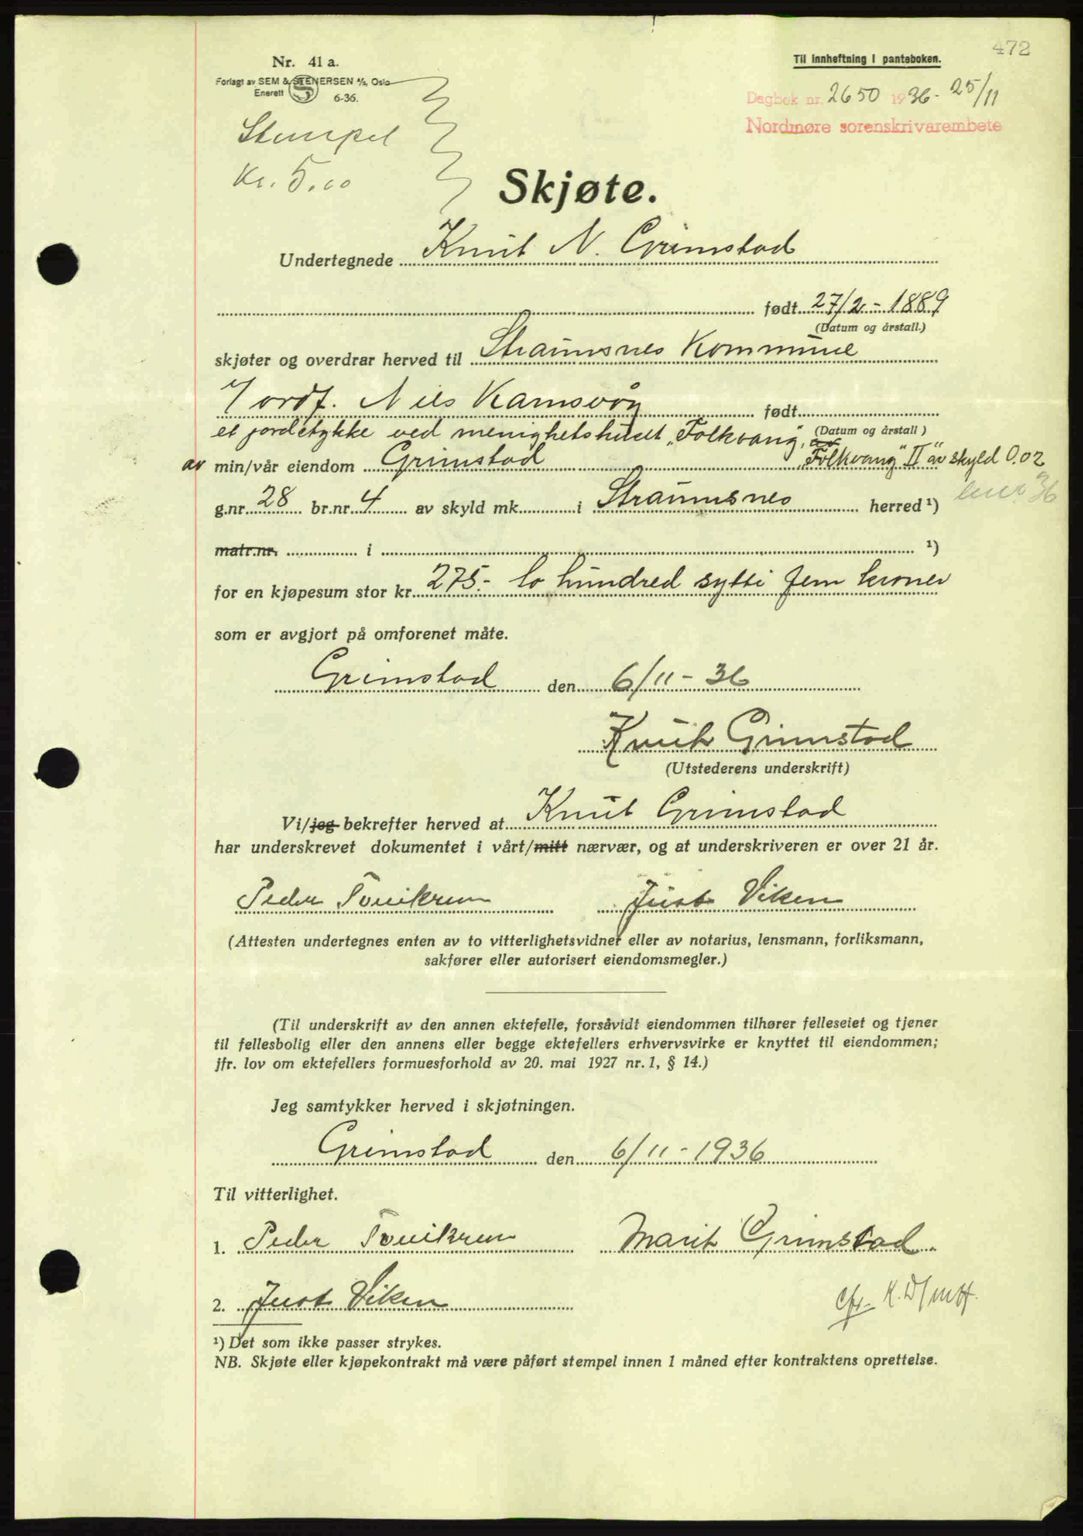 472
Nr. 41 a.
Til innheftning i panteboken.
Forlagt av SEM & STENERSEN A/S, Oslo
Enerett 6-36.
Dagbok nr. 2650 1936 - 25/11
Nordmøre sorenskrivarembete
Stempel
Kr. 5.00
Skjøte.
Undertegnede Knut N. Grimstad
født 27/2 - 1889
(Datum og årstall.)
skjøter og overdrar herved til Straumsnes Kommune
v/ ordf. Nils Kamsvåg født
(Datum og årstall)
et jordstykke ved menighetshuset "Folkvang",
av min/vår eiendom Grimstad "Folkvang" II av skyld 0.02
g.nr. 28 br.nr. 4 av skyld mk. i Straumsnes herred ¹)
matr.nr. i ¹)
for en kjøpesum stor kr. 275.- to hundred sytti fem kroner
som er avgjort på omforenet måte.
Grimstad den 6/11 - 36
Knut Grimstad
(Utstederens underskrift)
Vi/jeg bekrefter herved at Knut Grimstad
har underskrevet dokumentet i vårt/mitt nærvær, og at underskriveren er over 21 år.
Peder Tveikrem Just Viken
(Attesten undertegnes enten av to vitterlighetsvidner eller av notarius, lensmann, forliksmann,
sakfører eller autorisert eiendomsmegler.)
(Til underskrift av den annen ektefelle, forsåvidt eiendommen tilhører felleseiet og tjener
til fellesbolig eller den annens eller begge ektefellers erhvervsvirke er knyttet til eiendommen;
jfr. lov om ektefellers formuesforhold av 20. mai 1927 nr. 1, § 14.)
Jeg samtykker herved i skjøtningen.
Grimstad den 6/11 - 1936
Til vitterlighet.
1. Peder Tveikrem Marit Grimstad
2. Just Viken
¹) Det som ikke passer strykes.
NB. Skjøte eller kjøpekontrakt må være påført stempel innen 1 måned efter kontraktens oprettelse.